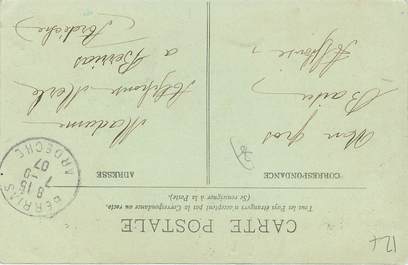 CARTE POSTALE
Tous les Pays étrangers n'acceptent pas la Correspondance au recto.
(Se renseigner à la Poste).
CORRESPONDANCE
ADRESSE
Mon gros
Baiser
Alphonse
Madame
Alphonse Merle
a Berrias
Ardèche
BERRIAS
ARDECHE
8 15
07